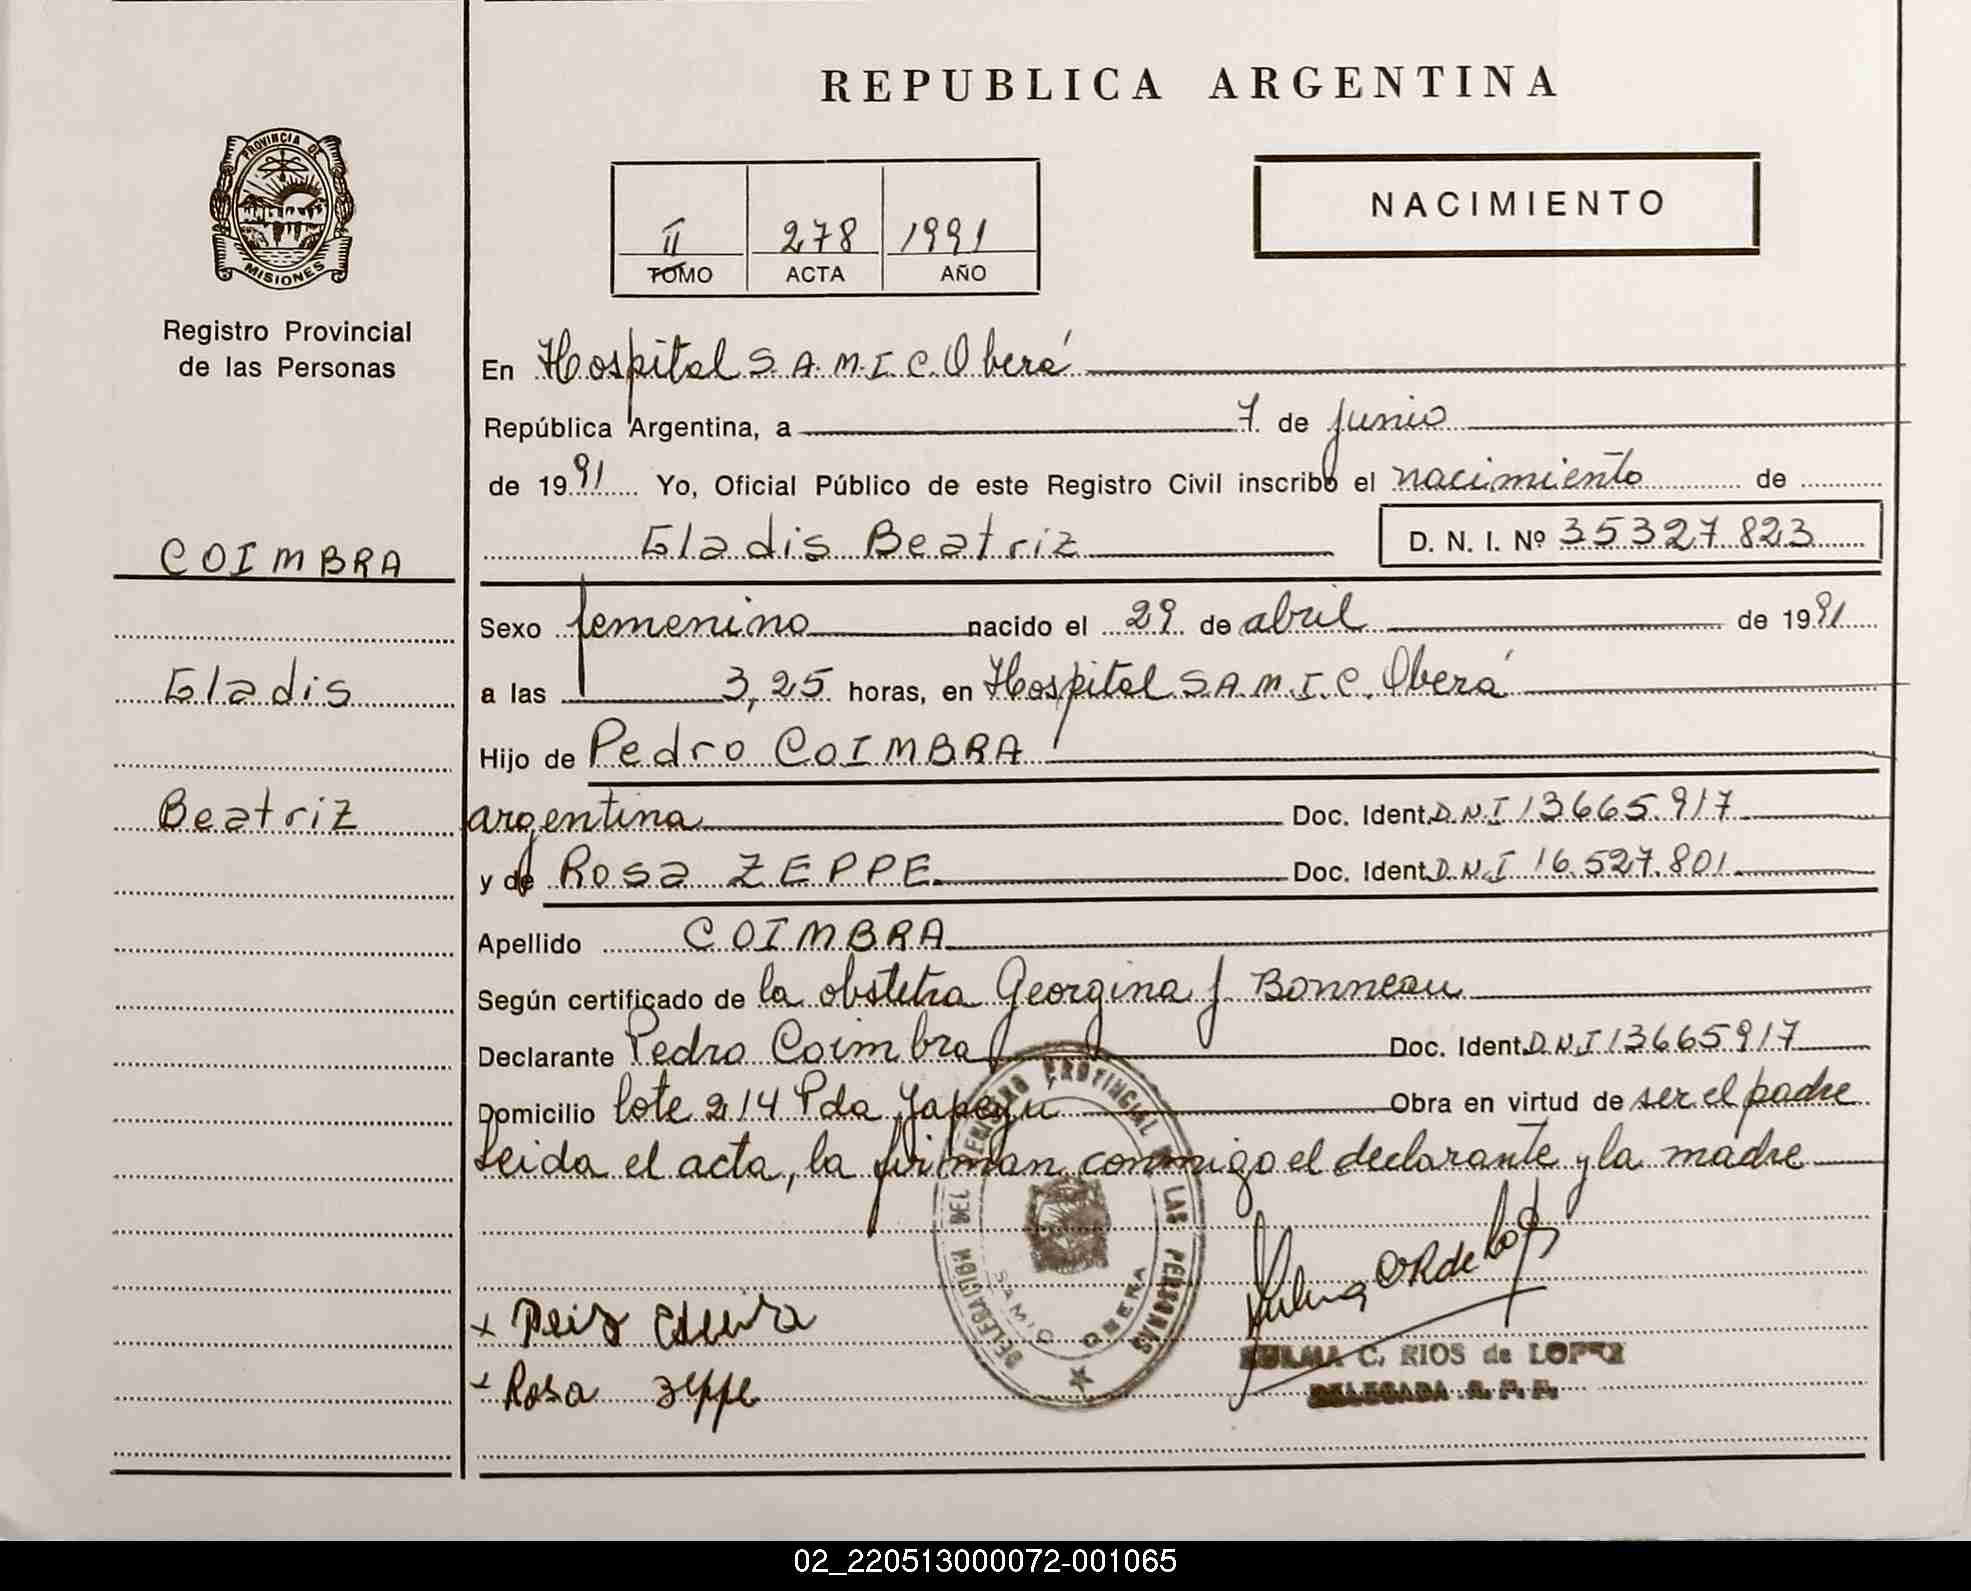 REPUBLICA ARGENTINA
PROVINCIA DE
MISIONES
Registro Provincial
de las Personas
NACIMIENTO
II 278 1991
TOMO ACTA AÑO
En Hospital S.A.M.I.C. Oberá
República Argentina, a 7 de junio
de 1991 Yo, Oficial Público de este Registro Civil inscribo el nacimiento de
Gladis Beatriz D. N. I. Nº 35327823
COIMBRA
Gladis
Beatriz
Sexo femenino nacido el 29 de abril de 1991
a las 3,25 horas, en Hospital S.A.M.I.C. Oberá
Hijo de Pedro COIMBRA
argentina Doc. Ident. D.N.I 13665.917
y de Rosa ZEPPE Doc. Ident. D.N.I 16.527.801
Apellido COIMBRA
Según certificado de la obstetra Georgina J. Bonneau
Declarante Pedro Coimbra Doc. Ident. D.N.I 13665917
Domicilio lote 214 Pda Yapeyú Obra en virtud de ser el padre
Leida el acta, la firman conmigo el declarante y la madre
DELEGACION DEL PROVINCIAL DE LAS PERSONAS
SAMIC OBERA
+ Rosa Zeppe
C. RIOS de LOPEZ
DELEGADA R. P. P.
02_220513000072-001065